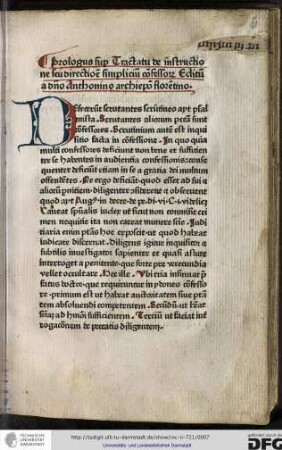 Prologus sup Tractatu de instructio
ne seu directiõe simpliciũ cõfessorʒ. Editũ
a dno Anthonino archiepõ florẽtino.
Defecerũt scrutantes scrutineo ayt psal
mista. Scrutantes alioruм pctã sunt
cõfessores Scrutinium autẽ est inqui
sitio facta in cõfessione. In quo quia
multi confessores deficiunt non bene et sufficien
ter se habentes in audientia confessionis: conse
quenter deficiũt etiam in se a gratia dei multum
offendẽtes. Ne ergo deficiãt
quod ayt Augꝰ
Caueat spũalis iudex ut sicut non commisit cri
men nequitie ita non careat munere scie. Judi
ciaria enim ptãs hoc exposit ut quod habeat
iudicare discernat. Diligens igitur inquisitor
subtilis inuestigator sapienter et quasi astute
interroget a penitente quod forte pre verecundia
vellet occultare. Hec ille.
requiruntur in ydoneo cõfesso
re. primum est ut habeat auctoritatem siue ptã
tem absoluendi competentem. Secũdũ ut
sufficientem. Terciũ ut faciat int
rogacõnem de peccatis diligentem.
TECHNISCHE
UNIVERSITÄT
DARMSTADT
http://tudigit.ulb.tu-darmstadt.de/show/inc-ii-721/0007
Universitäts- und Landesbibliothek Darmstadt
gefördert durch die
DFG